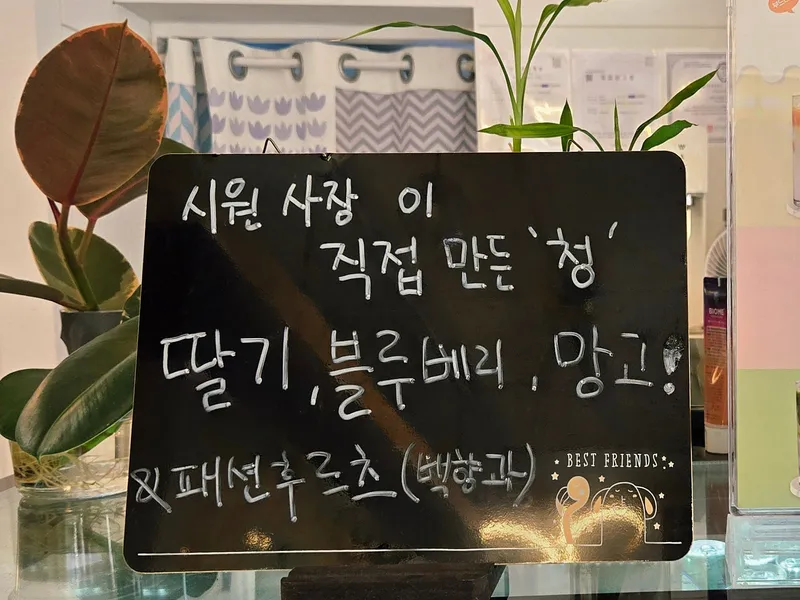 시원 사장 이
직접 만든 '청'
딸기, 블루베리, 망고!
& 패션후르츠 (백향과)
BEST FRIENDS